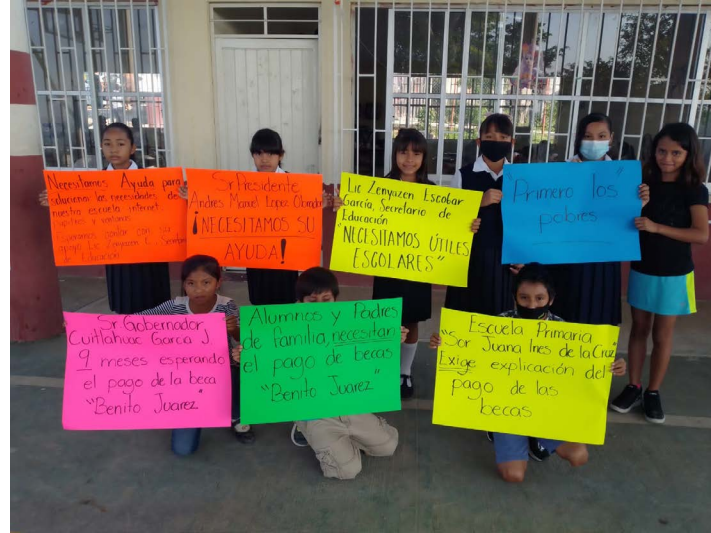 Necesitamos Ayuda para
solucionar las necesidades de
nuestra escuela internet
Esperamos contar con su
apoyo Lic Zenyazen E. Secretario
Educación
Sr Presidente
Andres Manuel Lopez Obrador
¡NECESITAMOS SU
AYUDA!
Lic Zenyazen Escobar
García, Secretario de
Educación
"NECESITAMOS ÚTILES
ESCOLARES"
"Primero los
pobres"
Sr. Gobernador
Cuitlahuac Garcia J.
9 meses esperando
el pago de la beca
"Benito Juarez"
Alumnos y Padres
de familia, necesitan
el pago de becas
"Benito Juarez"
Escuela Primaria
"Sor Juana Ines de la Cruz"
Exige explicación del
pago de las
becas